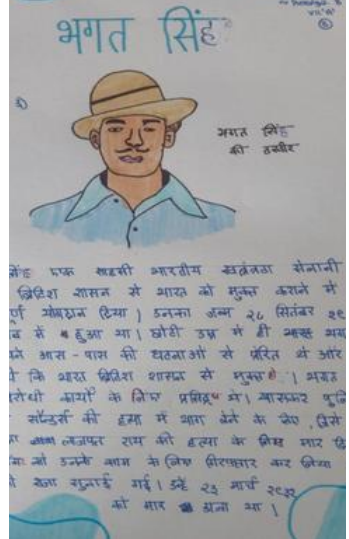 VII 'B'
भगत सिंह
भगत सिंह
की तस्वीर
सिंह एक साहसी भारतीय स्वतंत्रता सेनानी
ब्रिटिश शासन से भारत को मुक्त कराने में
र्ण योगदान दिया। उनका जन्म २८ सितंबर १९
में हुआ था। छोटी उम्र में ही भगत
ने आस-पास की घटनाओं से प्रेरित थे और
कि भारत ब्रिटिश शासन से मुक्त हो। भगत
रोधी कार्यों के लिए प्रसिद्ध थे। खासकर पु
सॉन्डर्स की हत्या में भाग लेने के लिए, जिसे
लाजपत राय की हत्या के लिए मार दि
उनके काम के लिए गिरफ्तार कर लिया
सजा सुनाई गई। उन्हें २३ मार्च १९३१
को मार था।